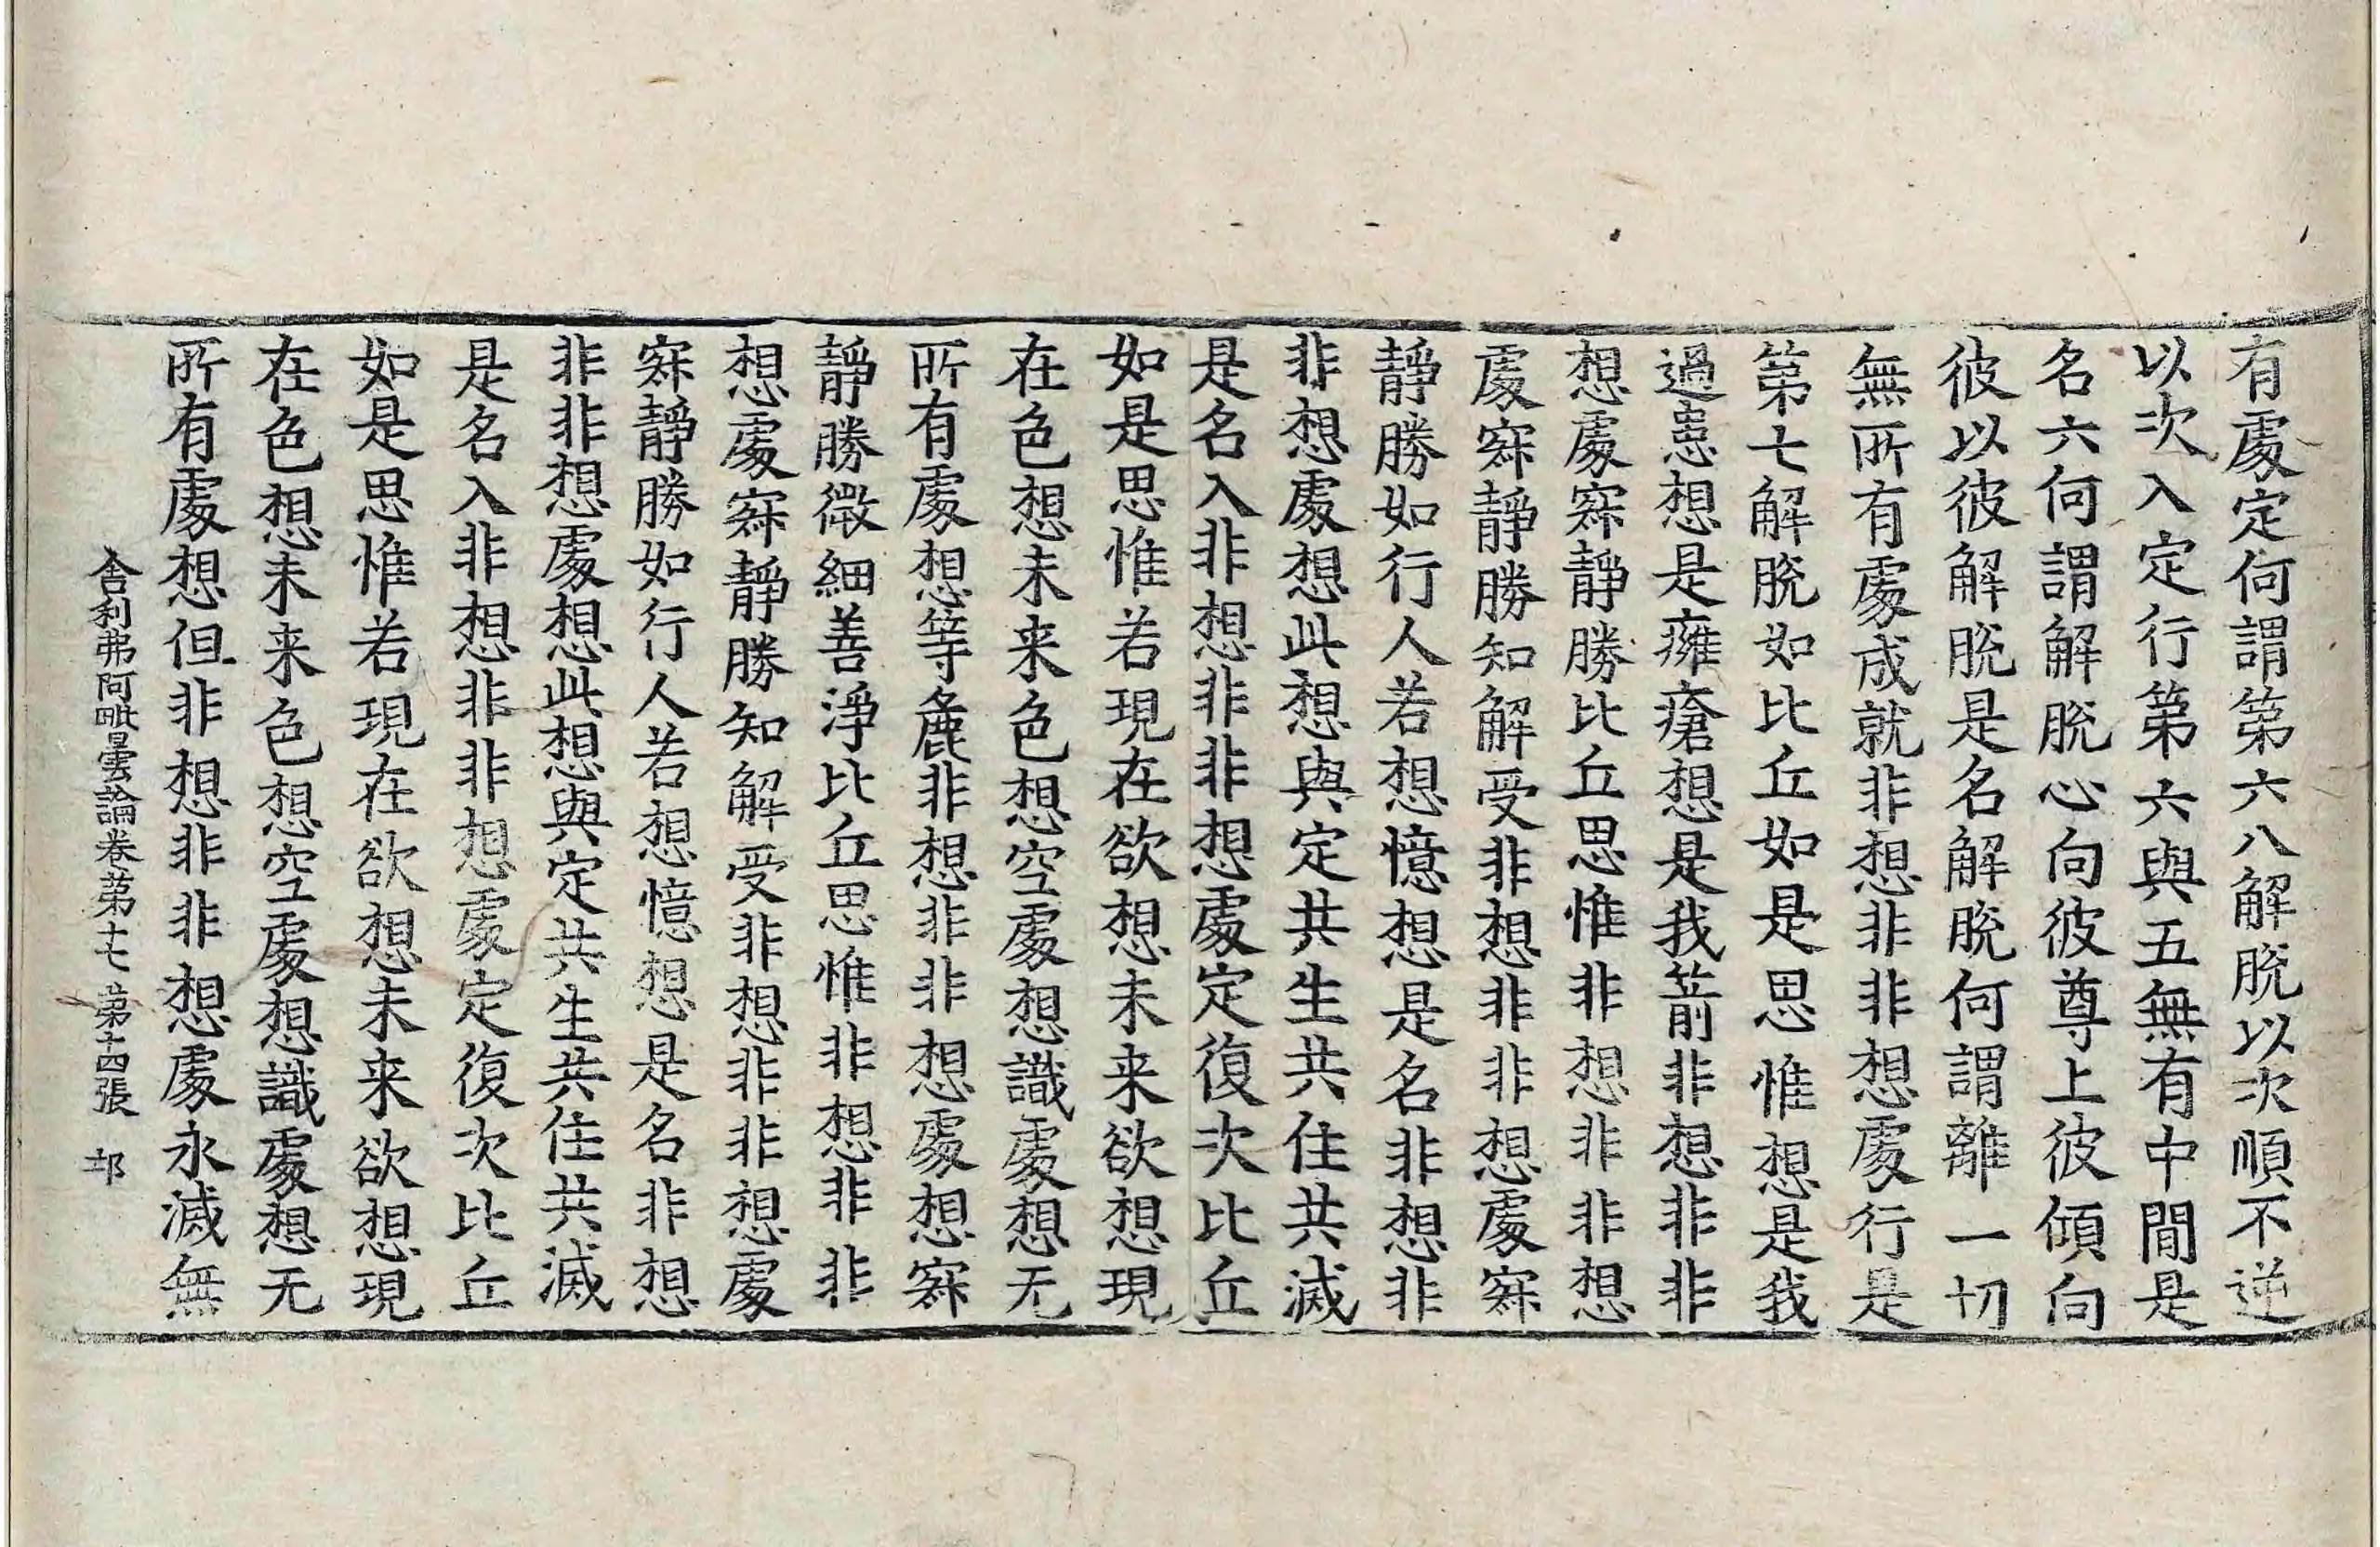 有處定何謂第六八解脫以次順不逆
以次入定行第六與五無有中間是
名六何謂解脫心向彼尊上彼傾向
彼以彼解脫是名解脫何謂離一切
無所有處成就非想非非想處行是
第七解脫如比丘如是思惟想是我
過患想是癰瘡想是我箭非想非非
想處寂靜勝比丘思惟非想非非想
處寂靜勝知解受非想非非想處寂
靜勝如行人若想憶想是名非想非
非想處想此想與定共生共住共滅
是名入非想非非想處定復次比丘
如是思惟若現在欲想未来欲想現
在色想未来色想空處想識處想无
所有處想等麁非想非非想處想寂
靜勝微細善淨比丘思惟非想非非
想處寂靜勝知解受非想非非想處
寂靜勝如行人若想憶想是名非想
非非想處想此想與定共生共住共滅
是名入非想非非想處定復次比丘
如是思惟若現在欲想未来欲想現
在色想未来色想空處想識處想无
所有處想但非想非非想處永滅無
舍利弗阿毗曇論卷第十七 第十四張